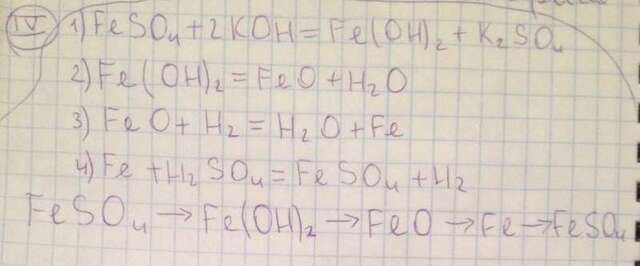 IV 1) FeSO₄ + 2KOH = Fe(OH)₂ + K₂SO₄
2) Fe(OH)₂ = FeO + H₂O
3) FeO + H₂ = H₂O + Fe
4) Fe + H₂SO₄ = FeSO₄ + H₂
FeSO₄ → Fe(OH)₂ → FeO → Fe → FeSO₄